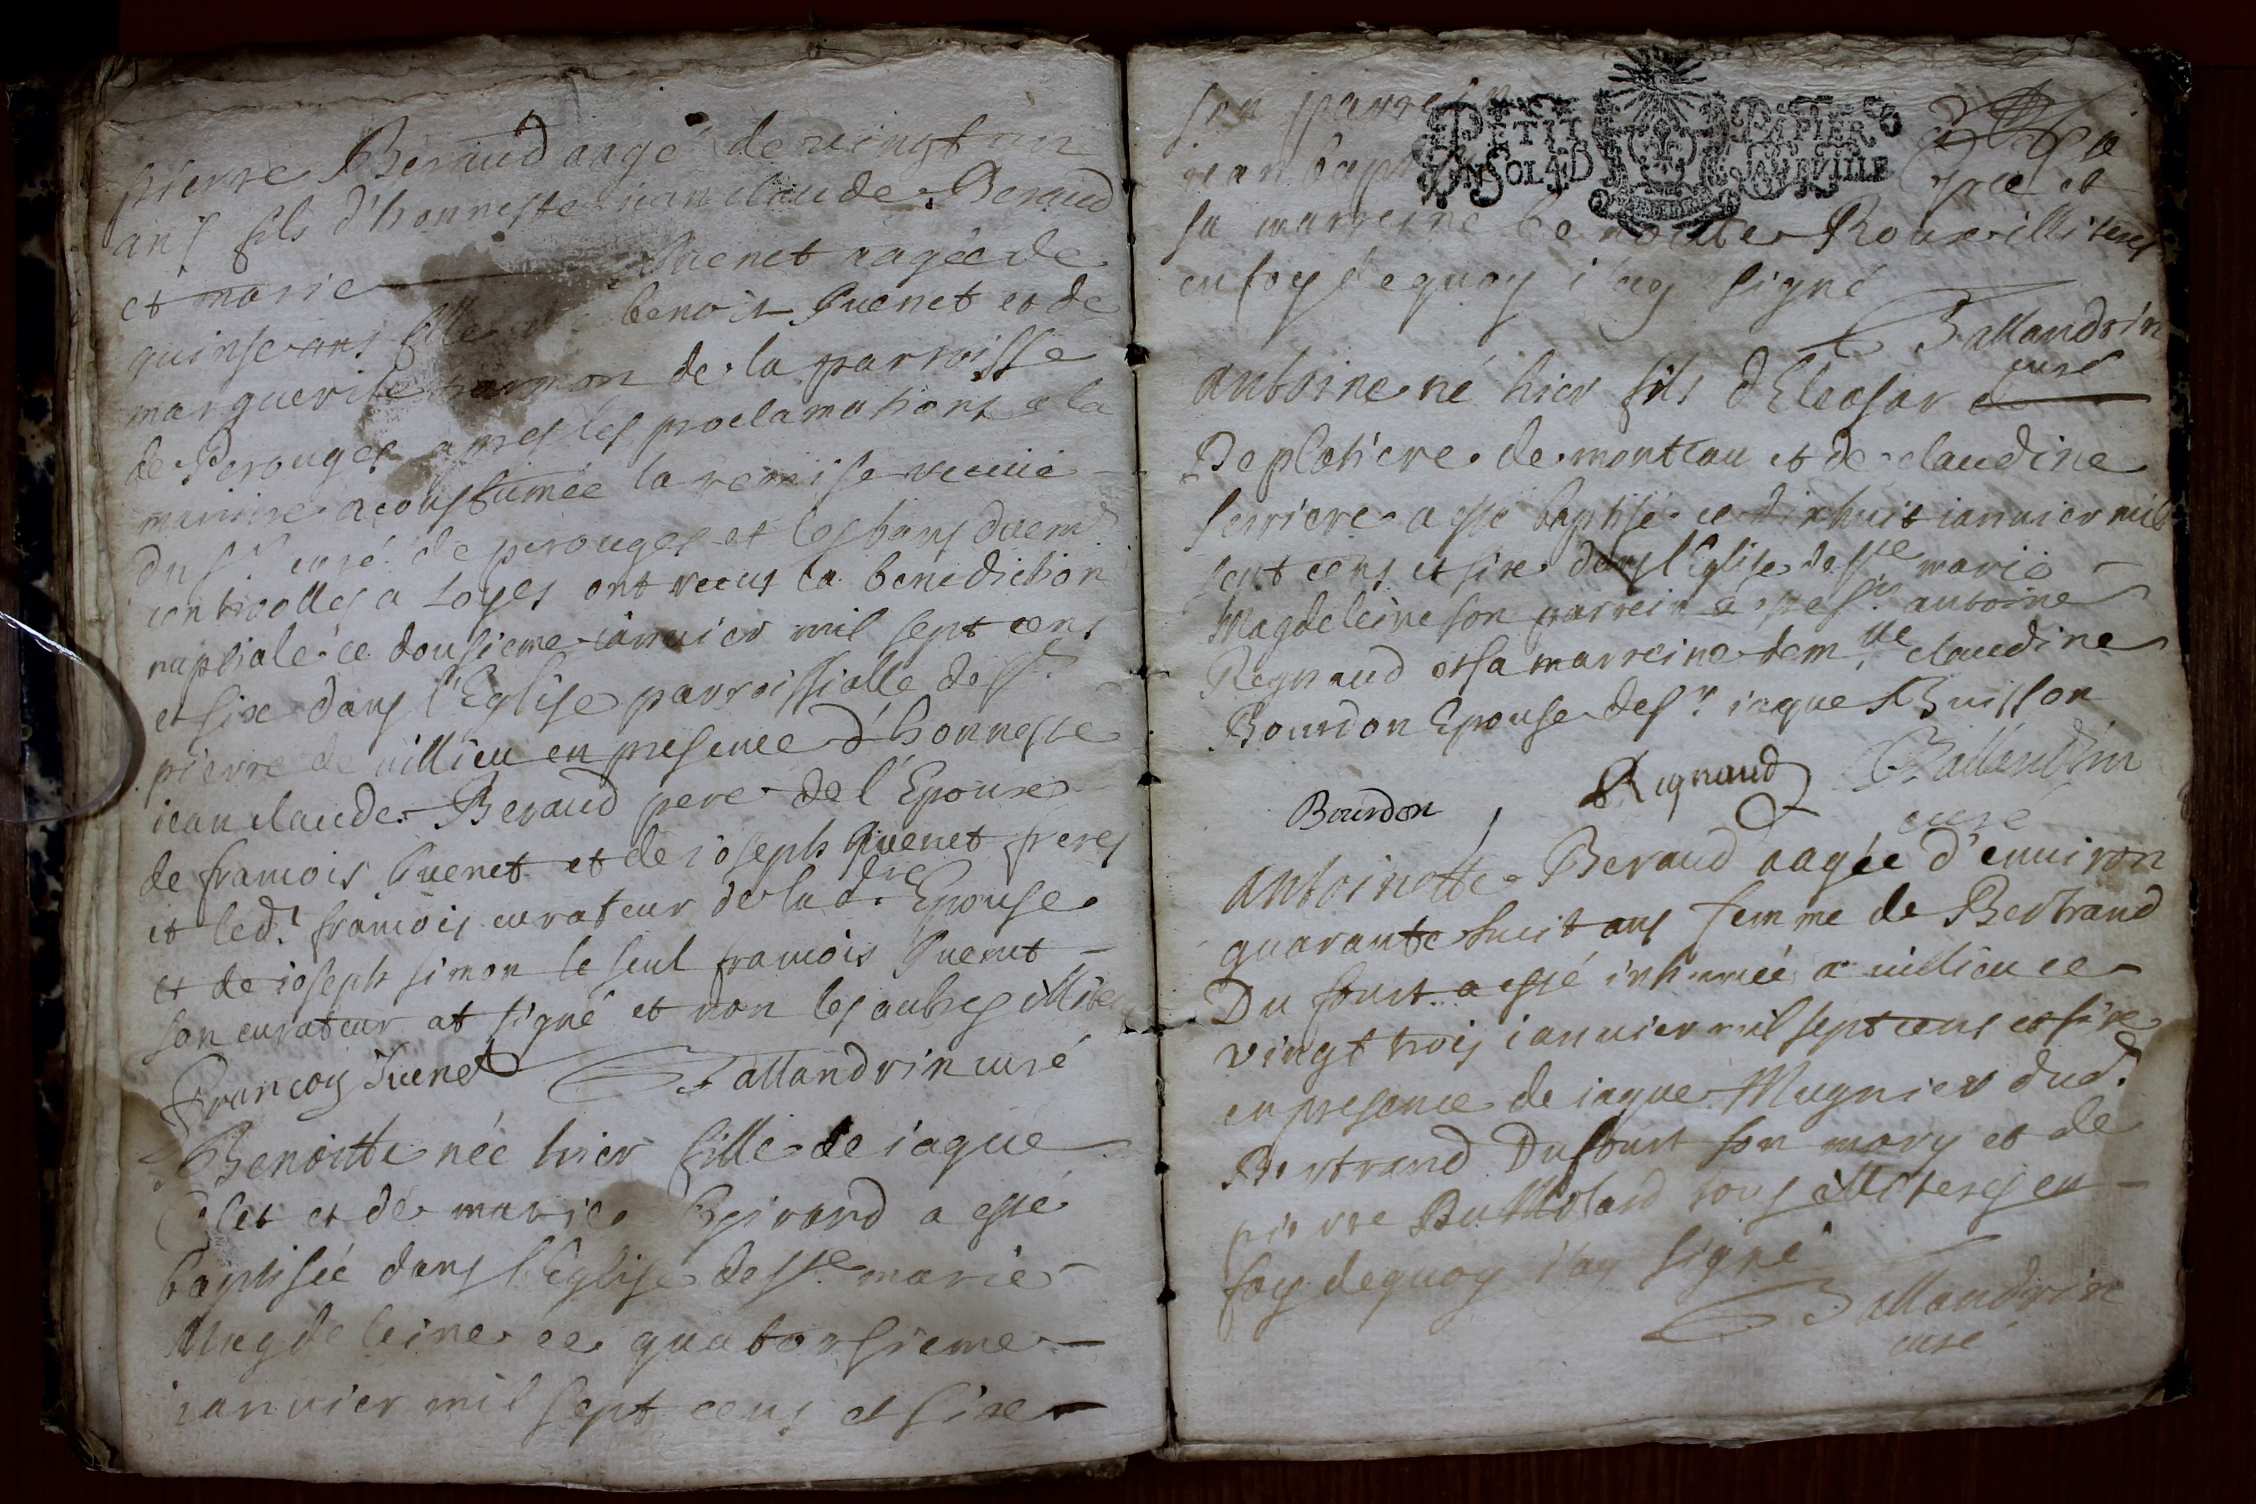 pierre Beraud aagé de vingt un
ans fils d'honneste jean claude Beraud
et marie Juenet aagée de
quinse ans fille de benoit Juenet et de
marguerite de la parroisse
de Perouges apres les proclamations a la
maniere acoustumée la remise receüe
du Sr curé de perouges et les bans düem.t
controlles a Loyes ont recus la benediction
nuptiale ce dousieme ianvier mil sept cens
et sixe dans l'Eglise parroissialle de St
pierre de villieu en presence d'honneste
iean claude Beraud pere de l'Epoux
de francois Juenet et de ioseph Juenet freres
et led.t francois curateur de la d.te Epouse
et de ioseph simon le seul francois Juenet
son curateur at signé et non les autres illiteres
Francoy Juenet Ballandrin curé
Benoitte née hier fille de iaque
et de marie Girard a esté
baptisée dans l'Eglise de Ste marie
Magdeleine ce quatorsieme
ianvier mil sept cens et sixe
son parrein
jean bapt
PETIT PAPIER
sa marreine benoitte Roux illiteres
en foy de quoy i'ay signé
Ballandrin
curé
antoine né hier fils d'Eleasar
De platiere de montcau et de claudine
ferriere a esté baptisé ce dixhuit ianvier mil
sept cens et sixe dans l'Eglise de Ste marie
Magdeleine son parrein a esté Sr antoine
Regnaud et sa marreine dem.lle claudine
Bourdon Epouse de Sr iaque Buisson
Bourdon Rignaud Ballandrin
curé
antoinette Beraud aagée d'environ
quarante huit ans femme de Bertrand
Du fourt a esté inhumée a villieu ce
vingt trois ianvier mil sept cens et sixe
en presence de iaque Mugnier dud.
Bertrand Dufourt son mary et de
pierre Du Molard tous illiteres en
foy de quoy i'ay signé
Ballandrin
curé